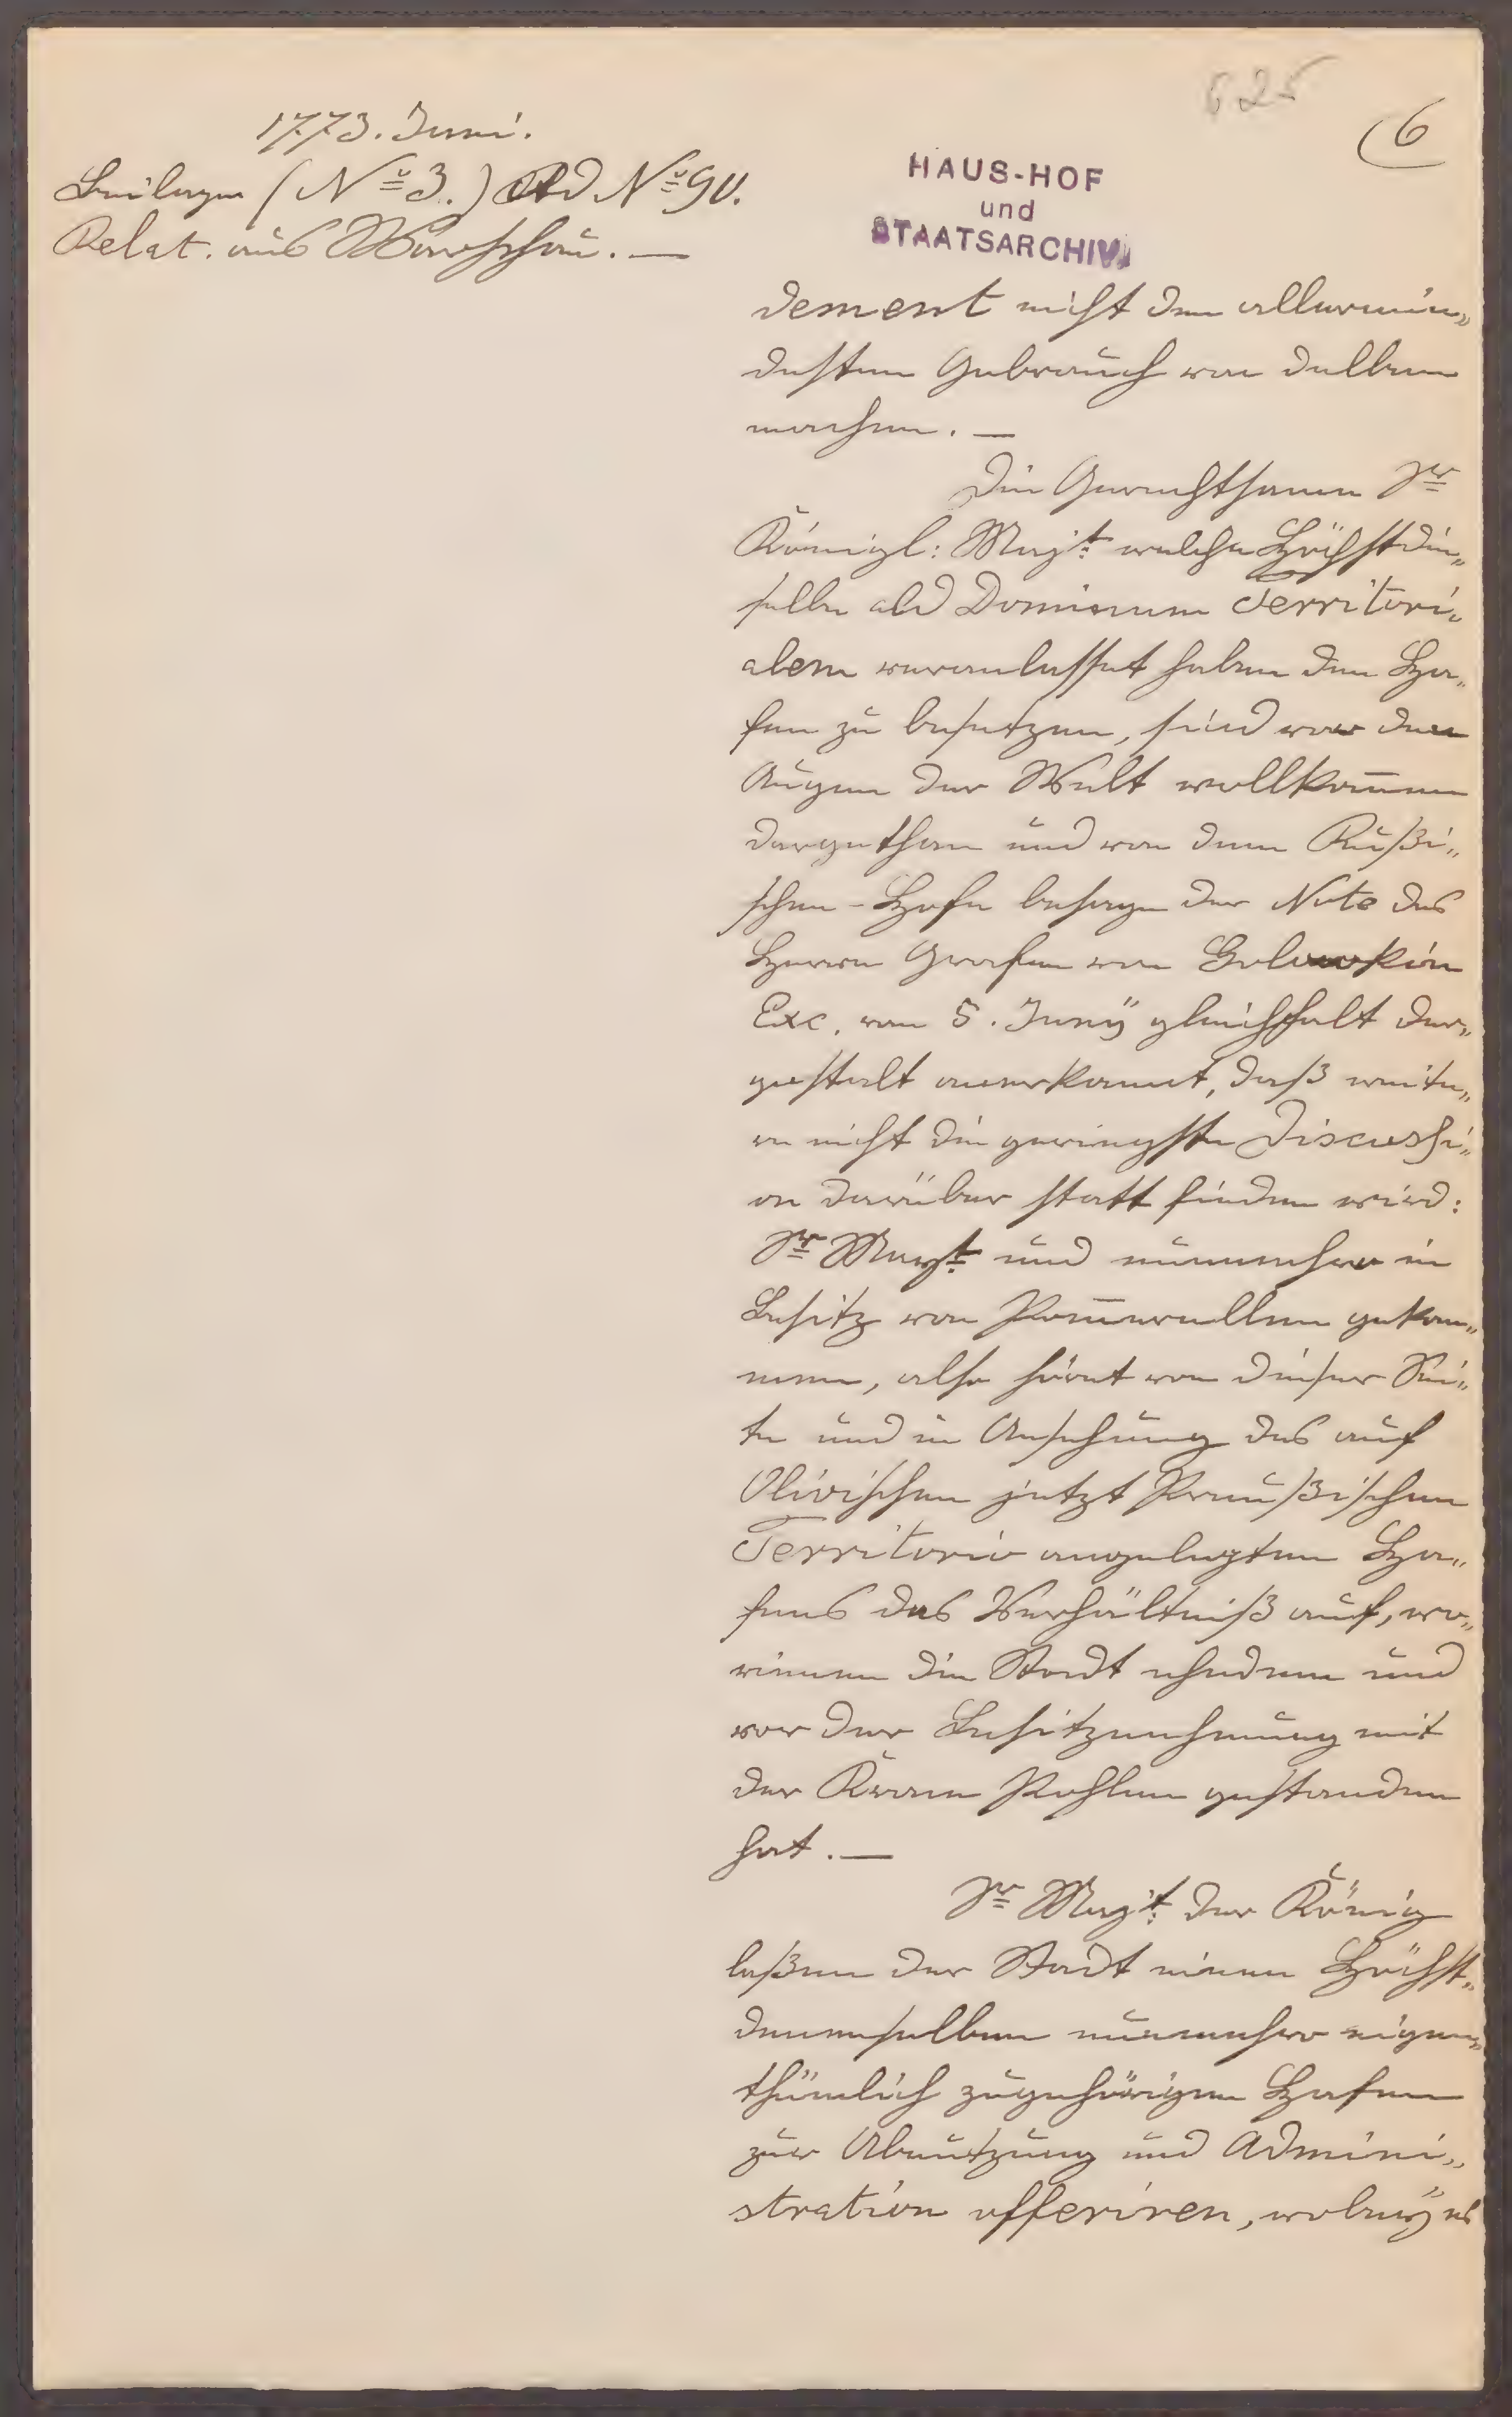 625
6
1773. Juni.
Beilagen (No 3.) Ad No 90.
Relat. aus Warschau. —
HAUS-HOF
und
STAATSARCHIV
dement nicht den allermin„
desten Gebrauch von dellben
machen. —
Die Gerechtsame Sr
Königl: Majt welche Höchstdie„
selbe als Dominum Territori„
alem veranlasset haben den Ha„
fen zu besetzen, sind vor den
Augen der Welt vollkom̅en
dargethan und von dem Rußi„
schen-Hofe besage der Note des
Herrn Grafen von Golowkin
Exc. vom 5. Junÿ gleichfalt der„
gestalt anerkannt, daß weite„
re nicht die geringste Discussi„
on darüber statt finden wird:
Sr Mayt und nunmehro in
Besitz von Pom̅erellen gekom„
men, also höret von dieser Sei„
te und in Ansehung des auf
Olivischen jetzt Preußischen
Territorio angelegten Ha„
fens das Verhältniß auf, wo„
rinnen die Stadt ehedem und
vor der Besitznehmung mit
der Kron Pohlen gestanden
hat. —
Sr Majt der König
laßen der Stadt einen Höchst„
denenselben nunmehro eigen„
thümlich zugehörigen Hafen
zur Abnutzung und Admini„
stration offeriren, wobeÿ es